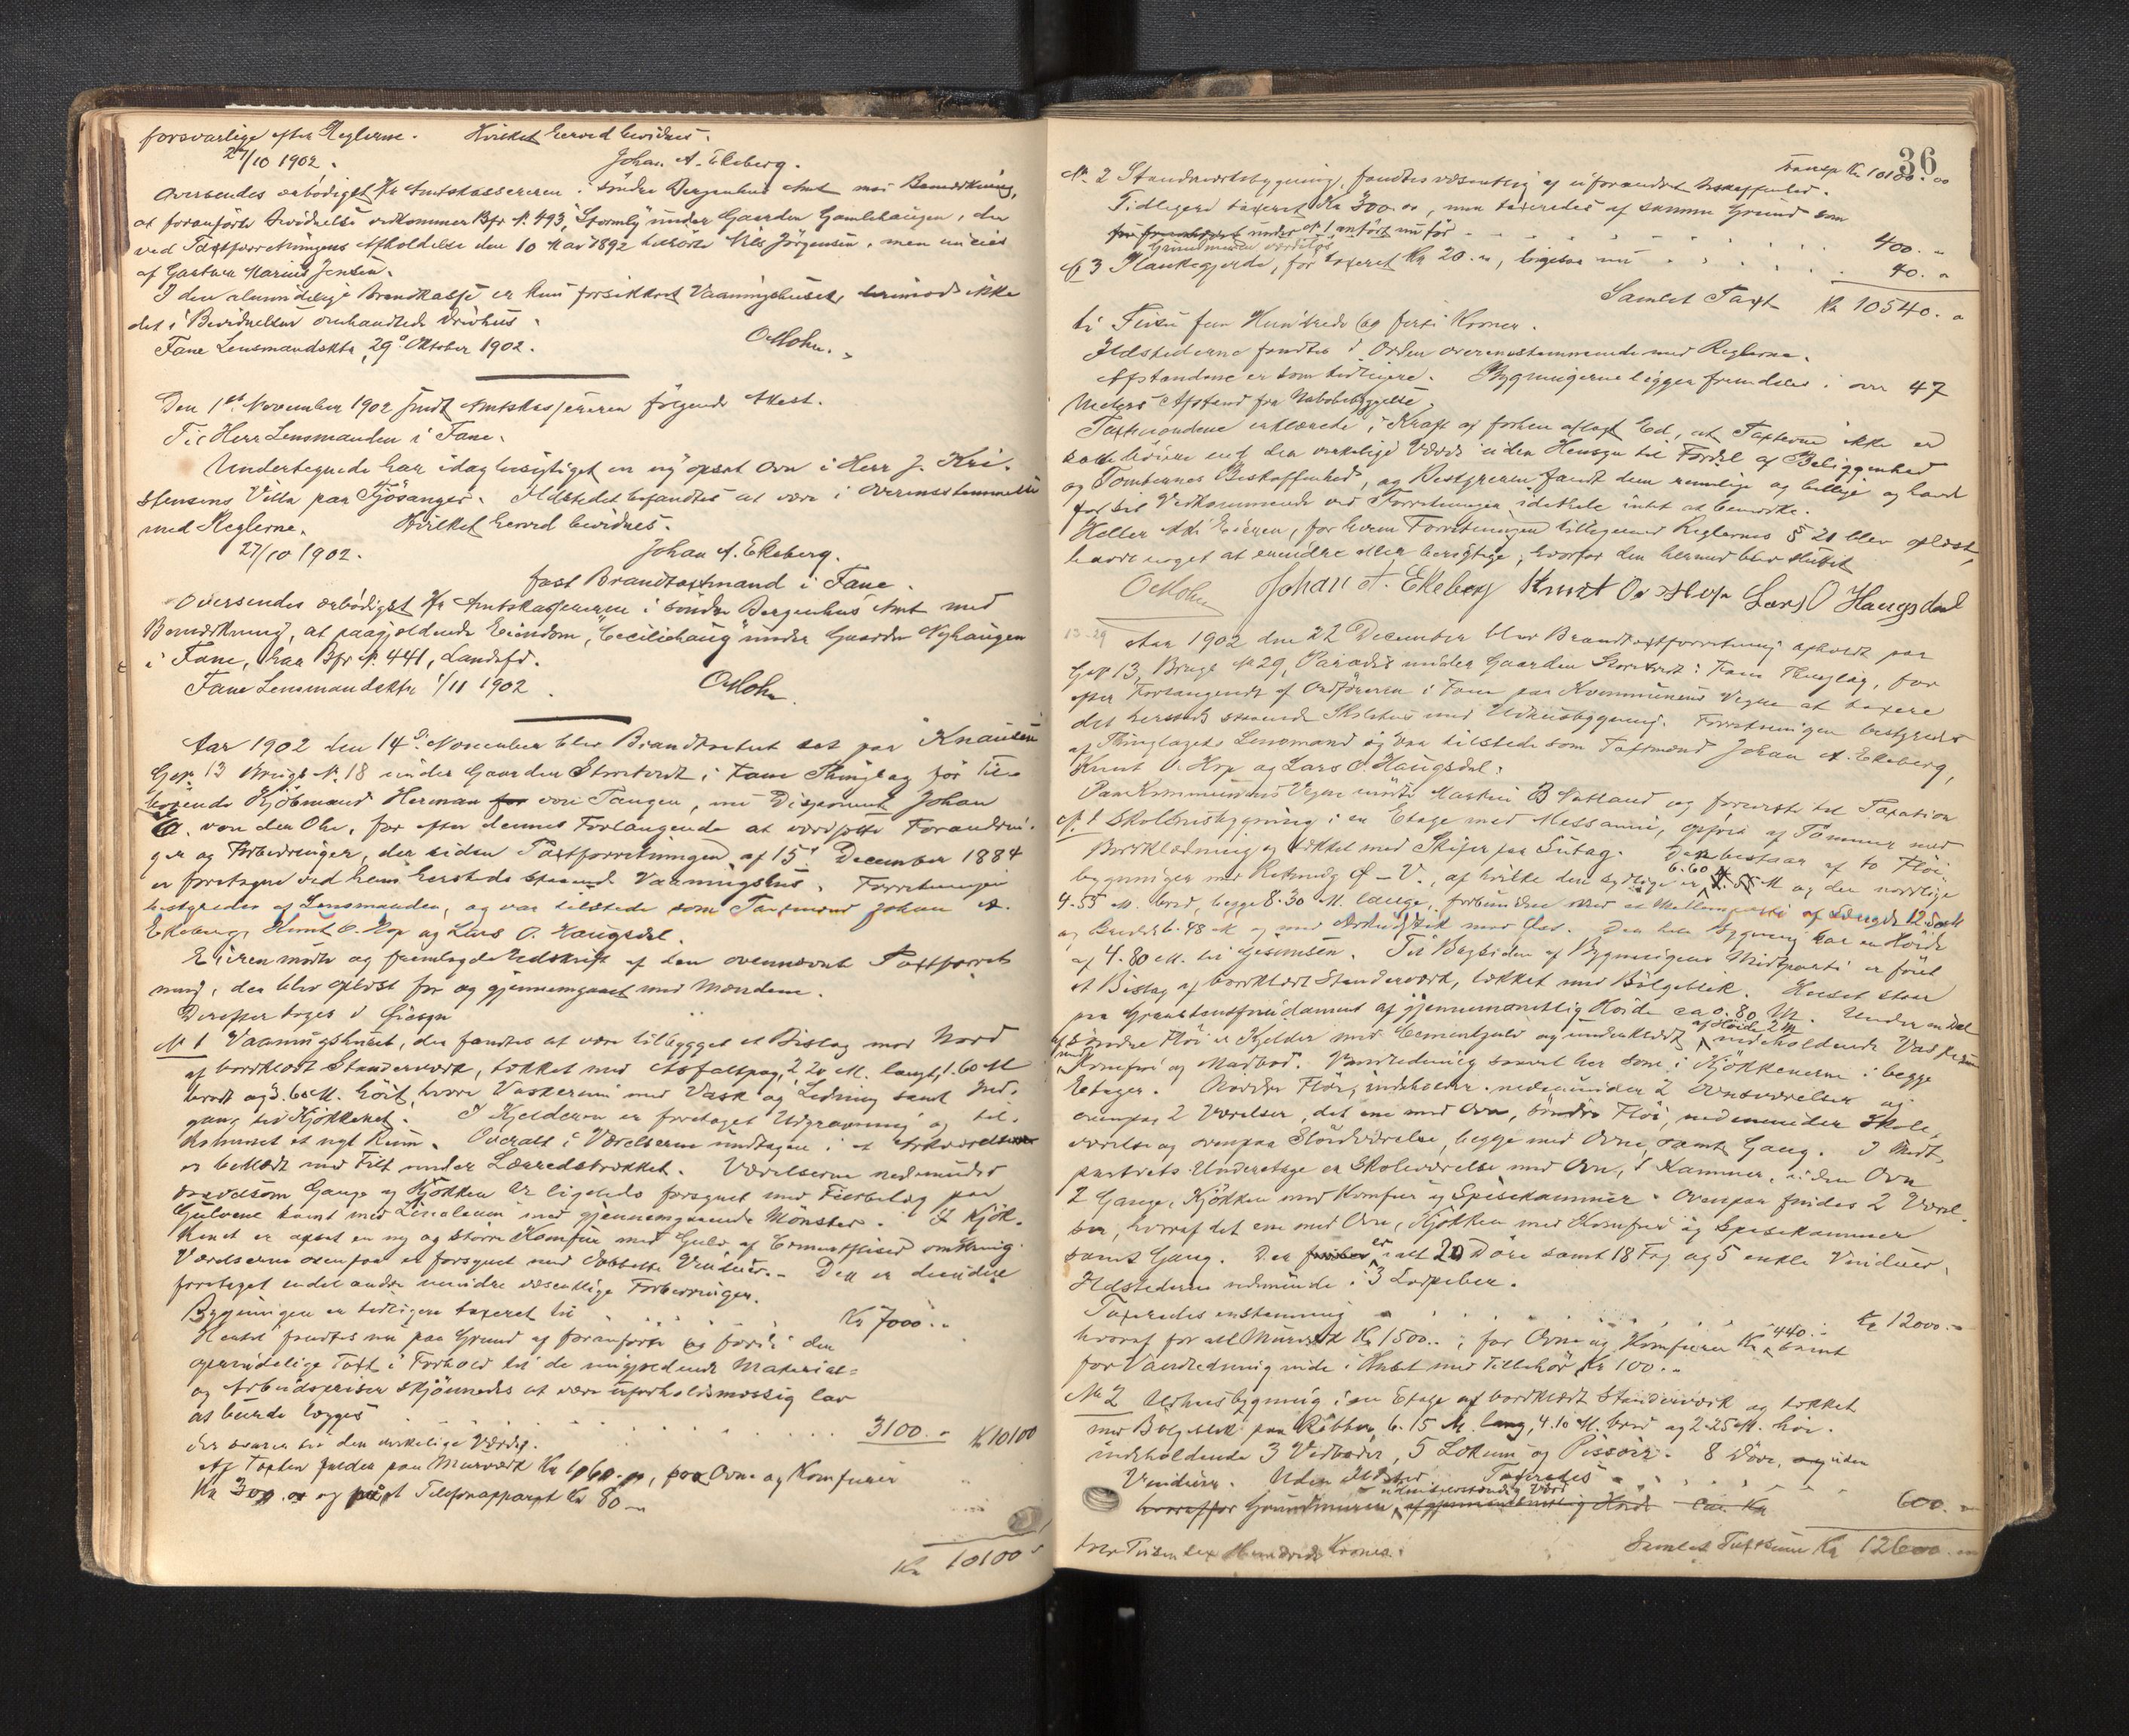 forsvarlige efter Reglerne. Hvilket herved bevidnes.
27/10 1902. Johan A. Ekeberg.
Oversendes ærbødigst Hr Amtskassereren i Søndre Bergenhus Amt med Bemærkning,
at foranførte Bevidnelse vedkommer Bfr. N. 493, "Stormly" under Gaarden Gamlehaugen, der
ved Taxtforretningens Afholdelse den 10 Mai 1892 tilhørte Nils Jørgensen, men nu eies
af Gartner Marius Jensen.
I den almindelige Brandkasse er kun forsikkret Vaaningshuset, derimod ikke
det i Bevidnelsen omhandlede Drivhus.
Fane Lensmandsktr, 29de Oktober 1902. O Hohn.
Den 1ste November 1902 sendt Amtskassereren følgende Attest.
Til Herr Lensmanden i Fane.
Undertegnede har idag besigtiget en ny opsat Ovn i Herr J. Kri-
stensens Villa paa Fjøsanger. Ildstedet befandtes at være i Overensstemmelse
med Reglerne. Hvilket herved bevidnes.
27/10 1902. Johan A. Ekeberg.
fast Brandtaxtmand i Fane.
Oversendes ærbødigst Hr Amtskassereren i Søndre Bergenhus Amt med
Bemærkning, at paagjældende Eiendom, "Ceciliehaug" under Gaarden Nyhaugen
i Fane, har Bfr N. 441, Landsfd.
Fane Lensmandsktr 1/11 1902. O Hohn.
Aar 1902 den 14de November blev Brandtaxtret sat paa "Knausen"
Gno. 13 Brugs N. 18 under Gaarden Storetvedt i Fane Thinglag før Til-
hørende Kjøbmand Herman von Tangen, nu Disponent Johan
G. von der Ohe, for efter dennes Forlangende at værdsætte Forandrin-
ger og Forbedringer, der siden Taxtforretningen af 15de December 1884
er foretagne ved hans hersteds staaende Vaaningshus. Forretningen
bestyredes af Lensmanden, og var tilstede som Taxtmænd Johan A.
Ekeberg, Knut O. Hop og Lars O. Haugsdal.
Eieren mødte og fremlagde Udskrift af den ovennævnte Taxtforret-
ning, der blev oplæst for og gjennemgaaet med Mændene.
Derefter toges i Øiesyn
N. 1 Vaaningshuset, der fandtes at være tilbygget et Bislag mod Nord
af bordklædt Standerværk, tækket med Asfaltpap, 2.20 M. langt, 1.60 M
bredt og 3.60 M. høit, hvori Vaskerum med Vask og Ledning samt Ind-
gang til Kjøkkenet. I Kjelderen er foretaget Udgravning og til-
kommet et nyt Rum. Overalt i Værelserne undtagen i et
er beklædt med Filt under Lærredstrækket. Værelserne nedenunder
saavelsom Gange og Kjøkken er ligeledes forsynet med Fiirbelæg paa
Gulvene samt med Linoleum med gjennemgaaende Mønster. I Kjøk-
kenet er opsat en ny og større Komfur med Gulv af Cementfliser omkring.
Værelserne ovenpaa er forsynet med dobbelte Vinduer. Der er desuden
foretaget endel andre mindre væsentlige Forbedringer.
Bygningen er tidligere taxeret til Kr 7000.-
Huset fandtes nu paa Grund af foranførte og fordi den
oprindelige Taxt i Forhold til de nugjældende Material-
og Arbeidspriser skjønnedes at være uforholdsmæssig lav
at burde lægges 3100.- Kr 10100
der svarer til den virkelige Værdi.
Af Taxten falder paa Murværk Kr 1060.00, paa Ovne og Komfurer
Kr 300.00 og paa et Telefonapparat Kr 80.-
Kr 10100
36
Transp Kr 10100.00
N. 2 Standværksbygning, fandtes væsentlig af uforandret Beskaffenhed.
Tidligere taxeret Kr 300.00, men taxeredes af samme Grund som
under N. 1 anført nu for 400.-
Grundmuren værdiløs
N. 3 Flaskegjerde, før taxeret Kr 20.00, ligesaa nu 40.-
Samlet Taxt Kr 10540.-
ti Tusen fem Hundrede og førti Kroner.
Ildstederne fandtes i Orden overensstemmende med Reglerne.
Afstandene er som tidligere. Bygningerne ligger fremdeles i over 47
Meters Afstand fra Nabobebyggelse.
Taxtmændene erklærede i Kraft af forhen aflagt Ed, at Taxterne ikke er
sat høiere end den virkelige Værdi uden Hensyn til Fordel af Beliggenhed
og Tomternes Beskaffenhed, og Bestyreren fandt dem rimelige og billige og havde
for sit Vedkommende ved Forretningen idethele intet at bemærke.
Heller ikke Eieren, for hvem Forretningen tilligemed Reglernes § 21 blev oplæst,
havde noget at erindre eller besigtige, hvorfor den hermed blev sluttet
O Hohn Johan A. Ekeberg Knut O. Hop Lars O Haugsdal
13-29
Aar 1902 den 22 December blev Brandtaxtforretning afholdt paa
Gno 13, Brugs N. 29, Paradis under Gaarden Storetvedt i Fane Thinglag, for
efter Forlangende af Ordføreren i Fane paa Kommunens Vegne at taxere
det hersteds staaende Skolehus med Udhusbygning. Forretningen bestyredes
af Thinglagets Lensmand og var tilstede som Taxtmænd Johan A. Ekeberg,
Knut O. Hop og Lars O. Haugsdal.
Paa Kommunens Vegne mødte Mathias B Natland og foreviste til Taxation
N. 1 Skolehusbygning i en Etage med Messanin, opført af Tømmer med
Bordklædning og tækket med Skifer paa Sutag. Den bestaar af to Fløi-
bygninger med Retning Ø-V., af hvilke den sydlige er 6.60 M og den nordlige
4.55 M. bred, begge 8.30 M. lange, forbundne med et Mellemparti af Længde 12.50 M
og Bredde 6.48 M og med Arkudstik mod Øst. Den hele Bygning har en Høide
af 4.80 M. til Gesimsen. Til Bagsiden af Bygningens Midtparti er føiet
et Bislag af bordklædt Standerværk, tækket med Bølgeblik. Huset staar
paa Graastensfundament af gjennemsnitlig Høide ca 0.80 M. Under en Del
af søndre Fløi er Kjelder med Cementgulv og underklædt, af Høide 2 M, indeholdende Vaskerum
med Komfur og Madbod. Vandledning saavel her som i Kjøkkenerne i begge
Etager. Nordre Fløi indeholder nedenunder 2 Ovnsværelser og
ovenpaa 2 Værelser, det ene med Ovn, Søndre Fløi, nedenunder Skole-
værelse og ovenpaa Sløidværelse, begge med Ovne, samt Gang. I Midt-
partiets Underetage er Skoleværelse med Ovn, 1 Kammer, uden Ovn
2 Gange, Kjøkken med Komfur og Spisekammer. Ovenpaa findes 2 Værel-
ser, hvoraf det ene med Ovn, Kjøkken med Komfur og Spisekammer
samt Gang. Der er ialt 20 Døre samt 18 Fag og 5 enkle Vinduer.
Ildstederne udmunde i 3 Lodpiber.
Taxeredes enstemmig Kr 12000.-
hvoraf for alt Murværk Kr 1500.-, for Ovne og Komfurer Kr 440.- samt
for Vandledning inde i Huset med Tilbehør Kr 100.-
No 2 Udhusbygning i en Etage af bordklædt Standerværk og tækket
med Bølgeblik paa Robber, 6.15 M. lang, 4.10 M. bred og 2.25 M. høi.
indeholdende 3 Vedboder, 5 Lokum og Pissoir. 8 Døre, uden
Vinduer. Uden Ildsted. Taxeredes 600.-
hvoraf for Grundmuren uden selvstændig Værd
tolv Tusen sex Hundrede Kroner. Samlet Taxtsum Kr 12600.-